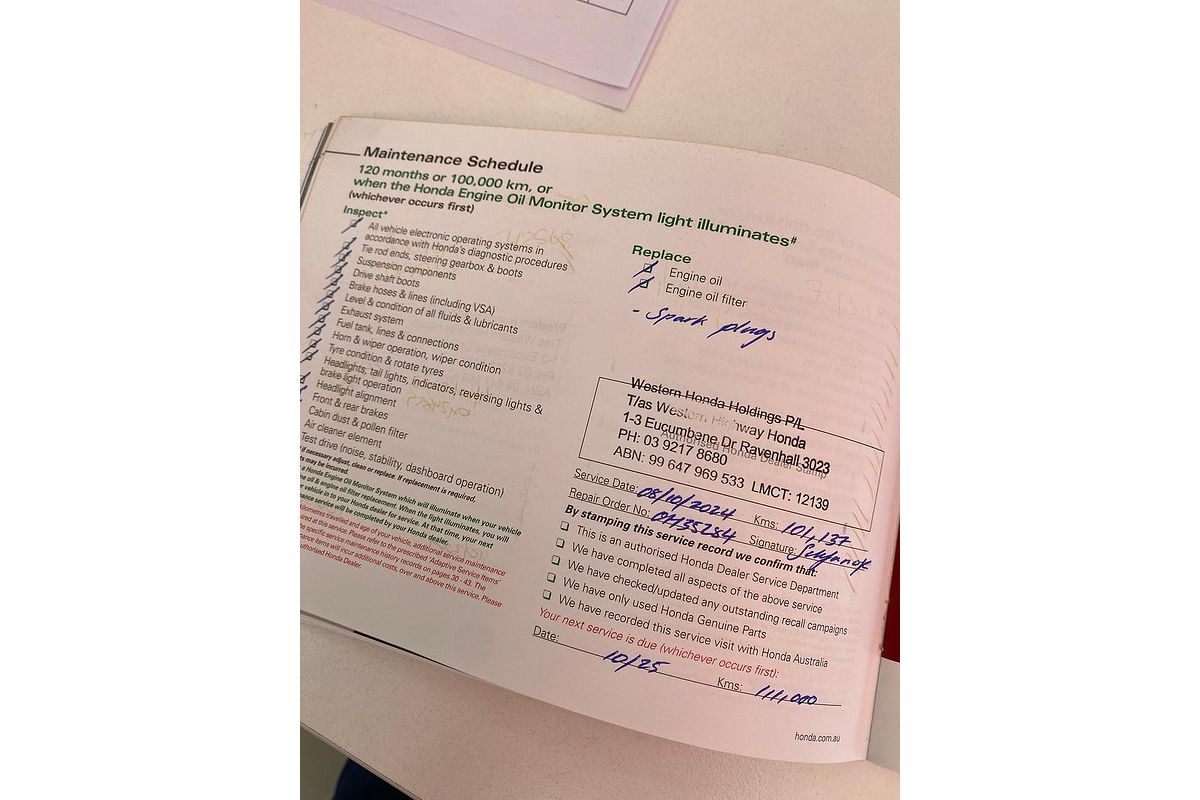 Maintenance Schedule
120 months or 100,000 km, or
when the Honda Engine Oil Monitor System light illuminates#
(whichever occurs first)
Inspect*
All vehicle electronic operating systems in
accordance with Honda's diagnostic procedures
Tie rod ends, steering gearbox & boots
Suspension components
Drive shaft boots
Brake hoses & lines (including VSA)
Level & condition of all fluids & lubricants
Exhaust system
Fuel tank, lines & connections
Horn & wiper operation, wiper condition
Tyre condition & rotate tyres
Headlights, tail lights, indicators, reversing lights &
brake light operation
Headlight alignment
Front & rear brakes
Cabin dust & pollen filter
Air cleaner element
Test drive (noise, stability, dashboard operation)
If necessary adjust, clean or replace. If replacement is required,
may be incurred.
a Honda Engine Oil Monitor System which will illuminate when your vehicle
oil & engine oil filter replacement. When the light illuminates, you will
vehicle in to your Honda dealer for service. At that time, your next
service will be completed by your Honda dealer.
kilometres travelled and age of your vehicle, additional service maintenance
at this service. Please refer to the prescribed 'Adaptive Service Items'
specific service maintenance history records on pages 30 - 43. The
items will incur additional costs, over and above this service. Please
authorised Honda Dealer.
Replace
Engine oil
Engine oil filter
- Spark plugs
Western Honda Holdings P/L
T/as Western Highway Honda
1-3 Eucumbene Dr Ravenhall 3023
Authorised Honda Dealer Stamp
PH: 03 9217 8680
ABN: 99 647 969 533 LMCT: 12139
Service Date: 08/10/2024 Kms: 101,137
Repair Order No: Signature:
By stamping this service record we confirm that:
This is an authorised Honda Dealer Service Department
We have completed all aspects of the above service
We have checked/updated any outstanding recall campaigns
We have only used Honda Genuine Parts
We have recorded this service visit with Honda Australia
Your next service is due (whichever occurs first):
Date: 10/25 Kms: 111,000
honda.com.au